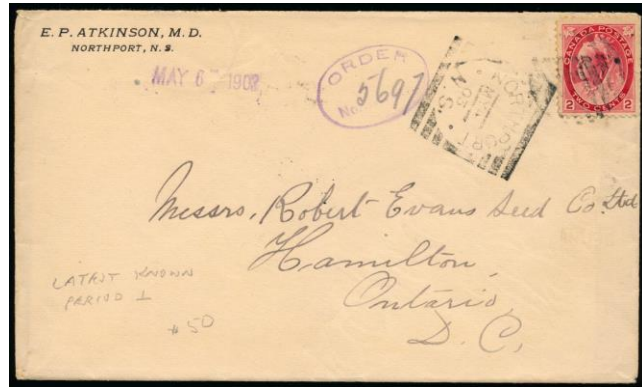 E. P. ATKINSON, M. D.
NORTHPORT, N. S.
MAY 6 - 1903
ORDER
No 5697
NORTHPORT
N. S.
CANADA POSTAGE
2 2
TWO CENTS
Messrs, Robert Evans Seed Co. Ltd
Hamilton,
Ontario,
D. C.
LATEST KNOWN
PERIOD 1
$50